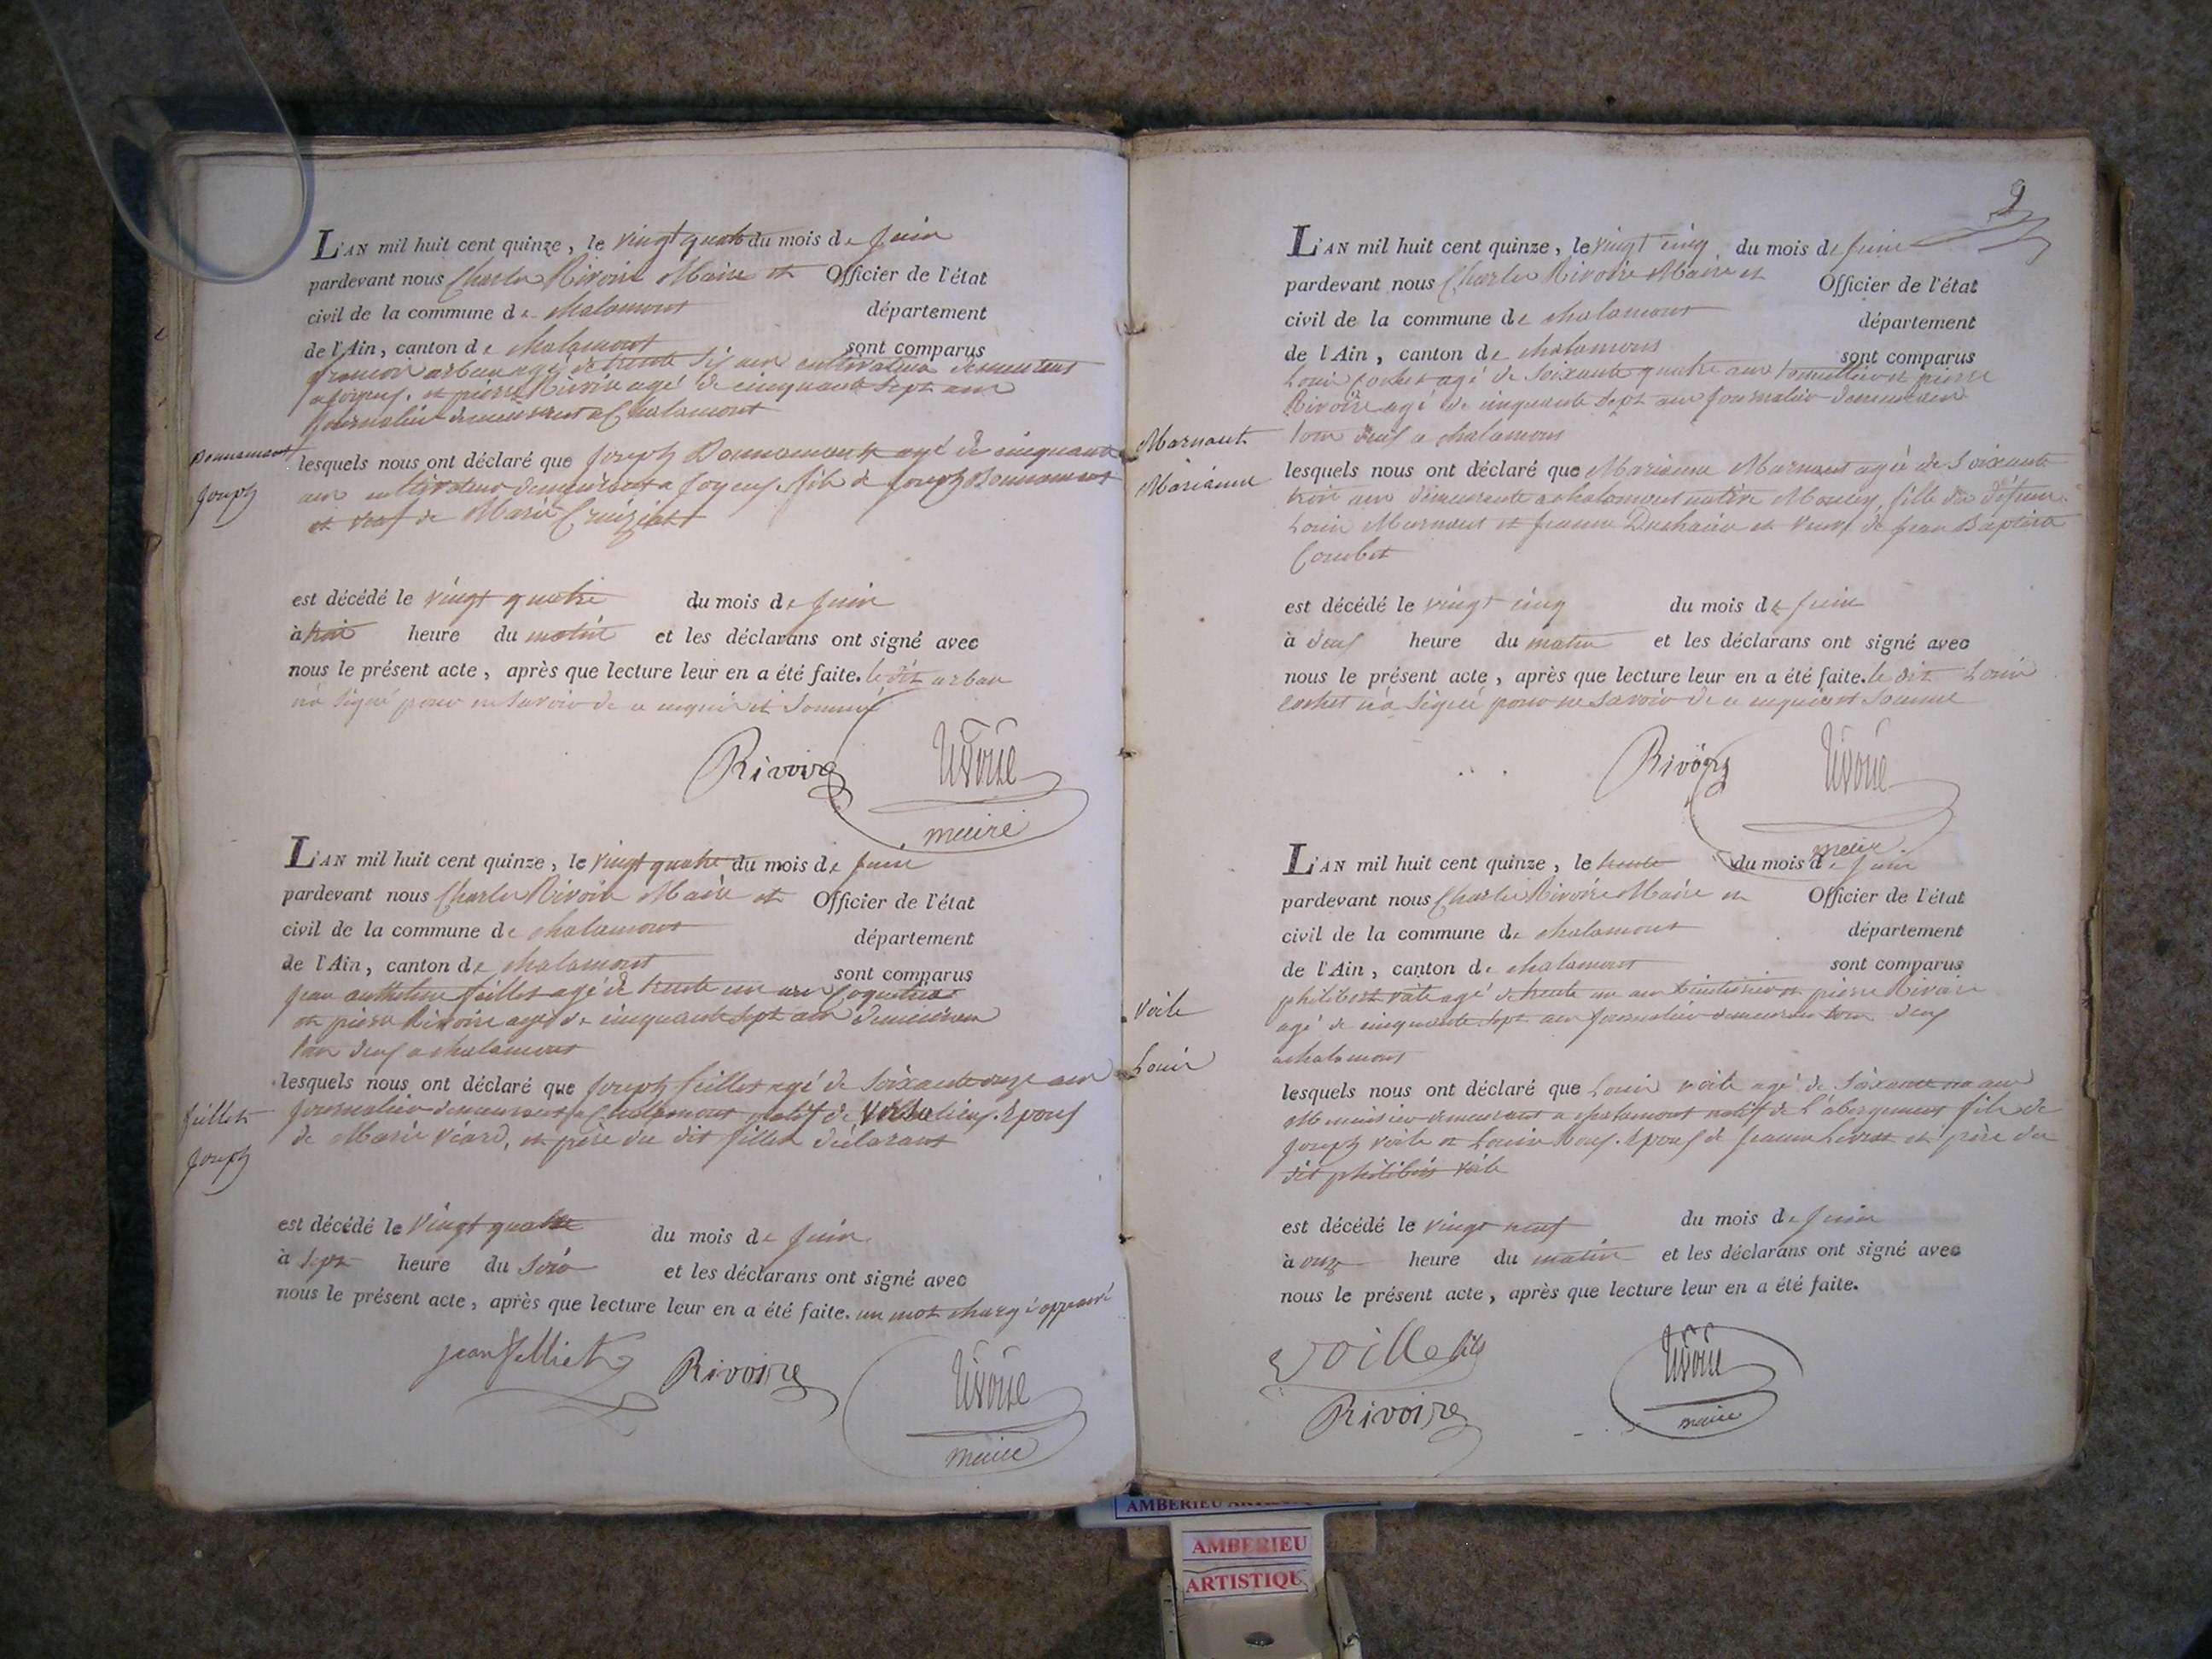 L'AN mil huit cent quinze, le vingt quatre du mois de Juin
pardevant nous Charles Rivoire Maire et Officier de l'état
civil de la commune de chalamont département
de l'Ain, canton de chalamont sont comparus
arban agé de trente six ans cultivateur demeurant
a joyeux, et pierre Rivoire agé de cinquante sept ans
journalier demeurant a Chalamont
Bonnamant
Joseph
lesquels nous ont déclaré que Joseph Bonnamant agé de cinquante
ans cultivateur demeurant a Joyeux fils de Joseph Bonnamant
et veuf de Marie Cruiziat
est décédé le vingt quatre du mois de Juin
à trois heure du matin et les déclarans ont signé avec
nous le présent acte, après que lecture leur en a été faite. le dit arban
n'a signé pour ne savoir de ce enquis et sommé
Rivoire Rivoire
maire
L'AN mil huit cent quinze, le vingt quatre du mois de Juin
pardevant nous Charles Rivoire Maire et Officier de l'état
civil de la commune de chalamont département
de l'Ain, canton de chalamont sont comparus
Jean anthelme feillet agé de trente un ans Coquetier
et pierre Rivoire agé de cinquante sept ans demeuran
tous deux a chalamont
feillet
Joseph
lesquels nous ont déclaré que Joseph feillet agé de soixante onze ans
journalier demeurant a Chalamont natif de Versalieux Epoux
de Marie viard, et père du dit fillet déclarant
est décédé le vingt quatre du mois de Juin
à sept heure du soir et les déclarans ont signé avec
nous le présent acte, après que lecture leur en a été faite. un mot chargé approuvé
jean felliet Rivoire Rivoire
maire
9
L'AN mil huit cent quinze, le vingt cinq du mois de Juin
pardevant nous Charles Rivoire Maire et Officier de l'état
civil de la commune de chalamont département
de l'Ain, canton de chalamont sont comparus
Louis cochet agé de soixante quatre ans tonnellier et pierre
Rivoire agé de cinquante sept ans journalier demeuran
tous deux a chalamont
Marnant
Marianne
lesquels nous ont déclaré que Marianne Marnant agée de soixante
trois ans demeurante a chalamont native, fille de défunt
Louis Marnant et et veuve de Jean Baptiste
Combet
est décédé le vingt cinq du mois de Juin
à deux heure du matin et les déclarans ont signé avec
nous le présent acte, après que lecture leur en a été faite. le dit Louis
cochet n'a signé pour ne savoir de ce enquis et sommé
Rivoire Rivoire
maire
L'AN mil huit cent quinze, le trente du mois de Juin
pardevant nous Charles Rivoire Maire et Officier de l'état
civil de la commune de chalamont département
de l'Ain, canton de chalamont sont comparus
philibert voile agé de trente un ans et pierre Rivoire
agé de cinquante sept ans journalier demeuran tous deux
a chalamont
Voile
Louis
lesquels nous ont déclaré que Louis voile agé de soixante ans
Menuisier demeurant a chalamont natif de l'abergement fils de
Joseph voile et Louise Epoux de Jeanne et père du
dit philibert voile
est décédé le vingt neuf du mois de Juin
à onze heure du matin et les déclarans ont signé avec
nous le présent acte, après que lecture leur en a été faite.
voille fils Rivoire
Rivoire maire
AMBERIEU
AMBERIEU
ARTISTIQU